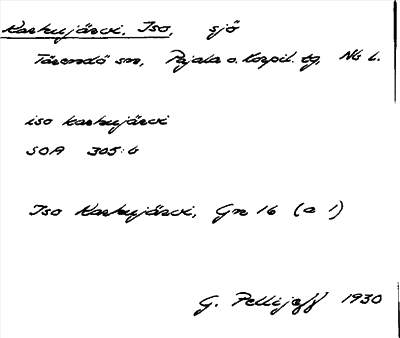 Karhujärvi, Iso, sjö
Tärendö sn, Pajala o. Korpil. tg, Nb l.
iso karhujärvi
SOA 305:6
Iso Karhujärvi, Gn 16 (a 1)
G. Pellijeff 1930